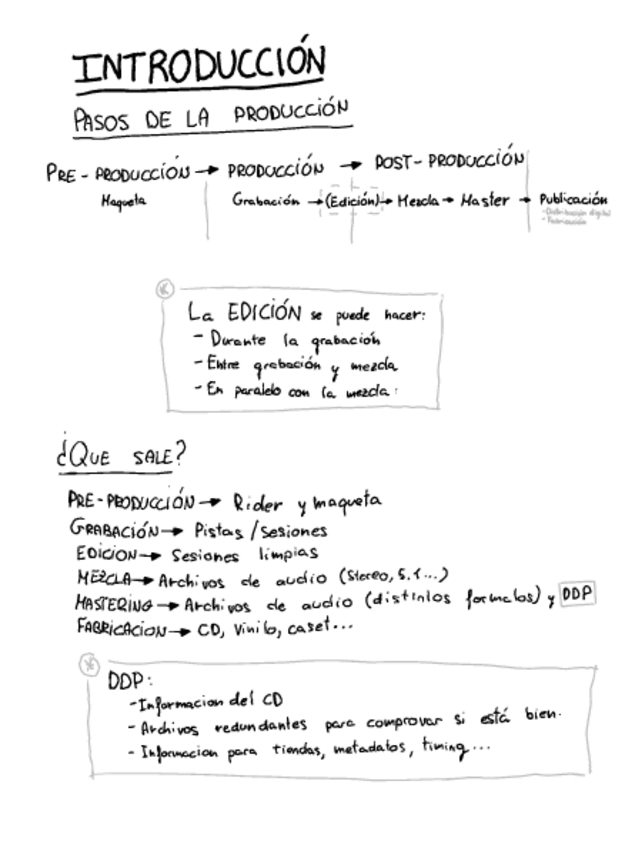 INTRODUCCIÓN
PASOS DE LA PRODUCCIÓN
PRE-PRODUCCIÓN → PRODUCCIÓN → POST-PRODUCCIÓN
Maqueta Grabación → (Edición) → Mezcla → Master → Publicación
- Distribución digital
- Fabricación
La EDICIÓN se puede hacer:
- Durante la grabación
- Entre grabación y mezcla
- En paralelo con la mezcla.
¿QUE SALE?
PRE-PRODUCCIÓN → Rider y maqueta
GRABACIÓN → Pistas / Sesiones
EDICION → Sesiones limpias
MEZCLA → Archivos de audio (Stereo, 5.1...)
MASTERING → Archivos de audio (distintos formatos) y DDP
FABRICACION → CD, Vinilo, caset...
DDP:
- Informacion del CD
- Archivos redundantes para comprovar si está bien.
- Informacion para tiendas, metadatos, timing...